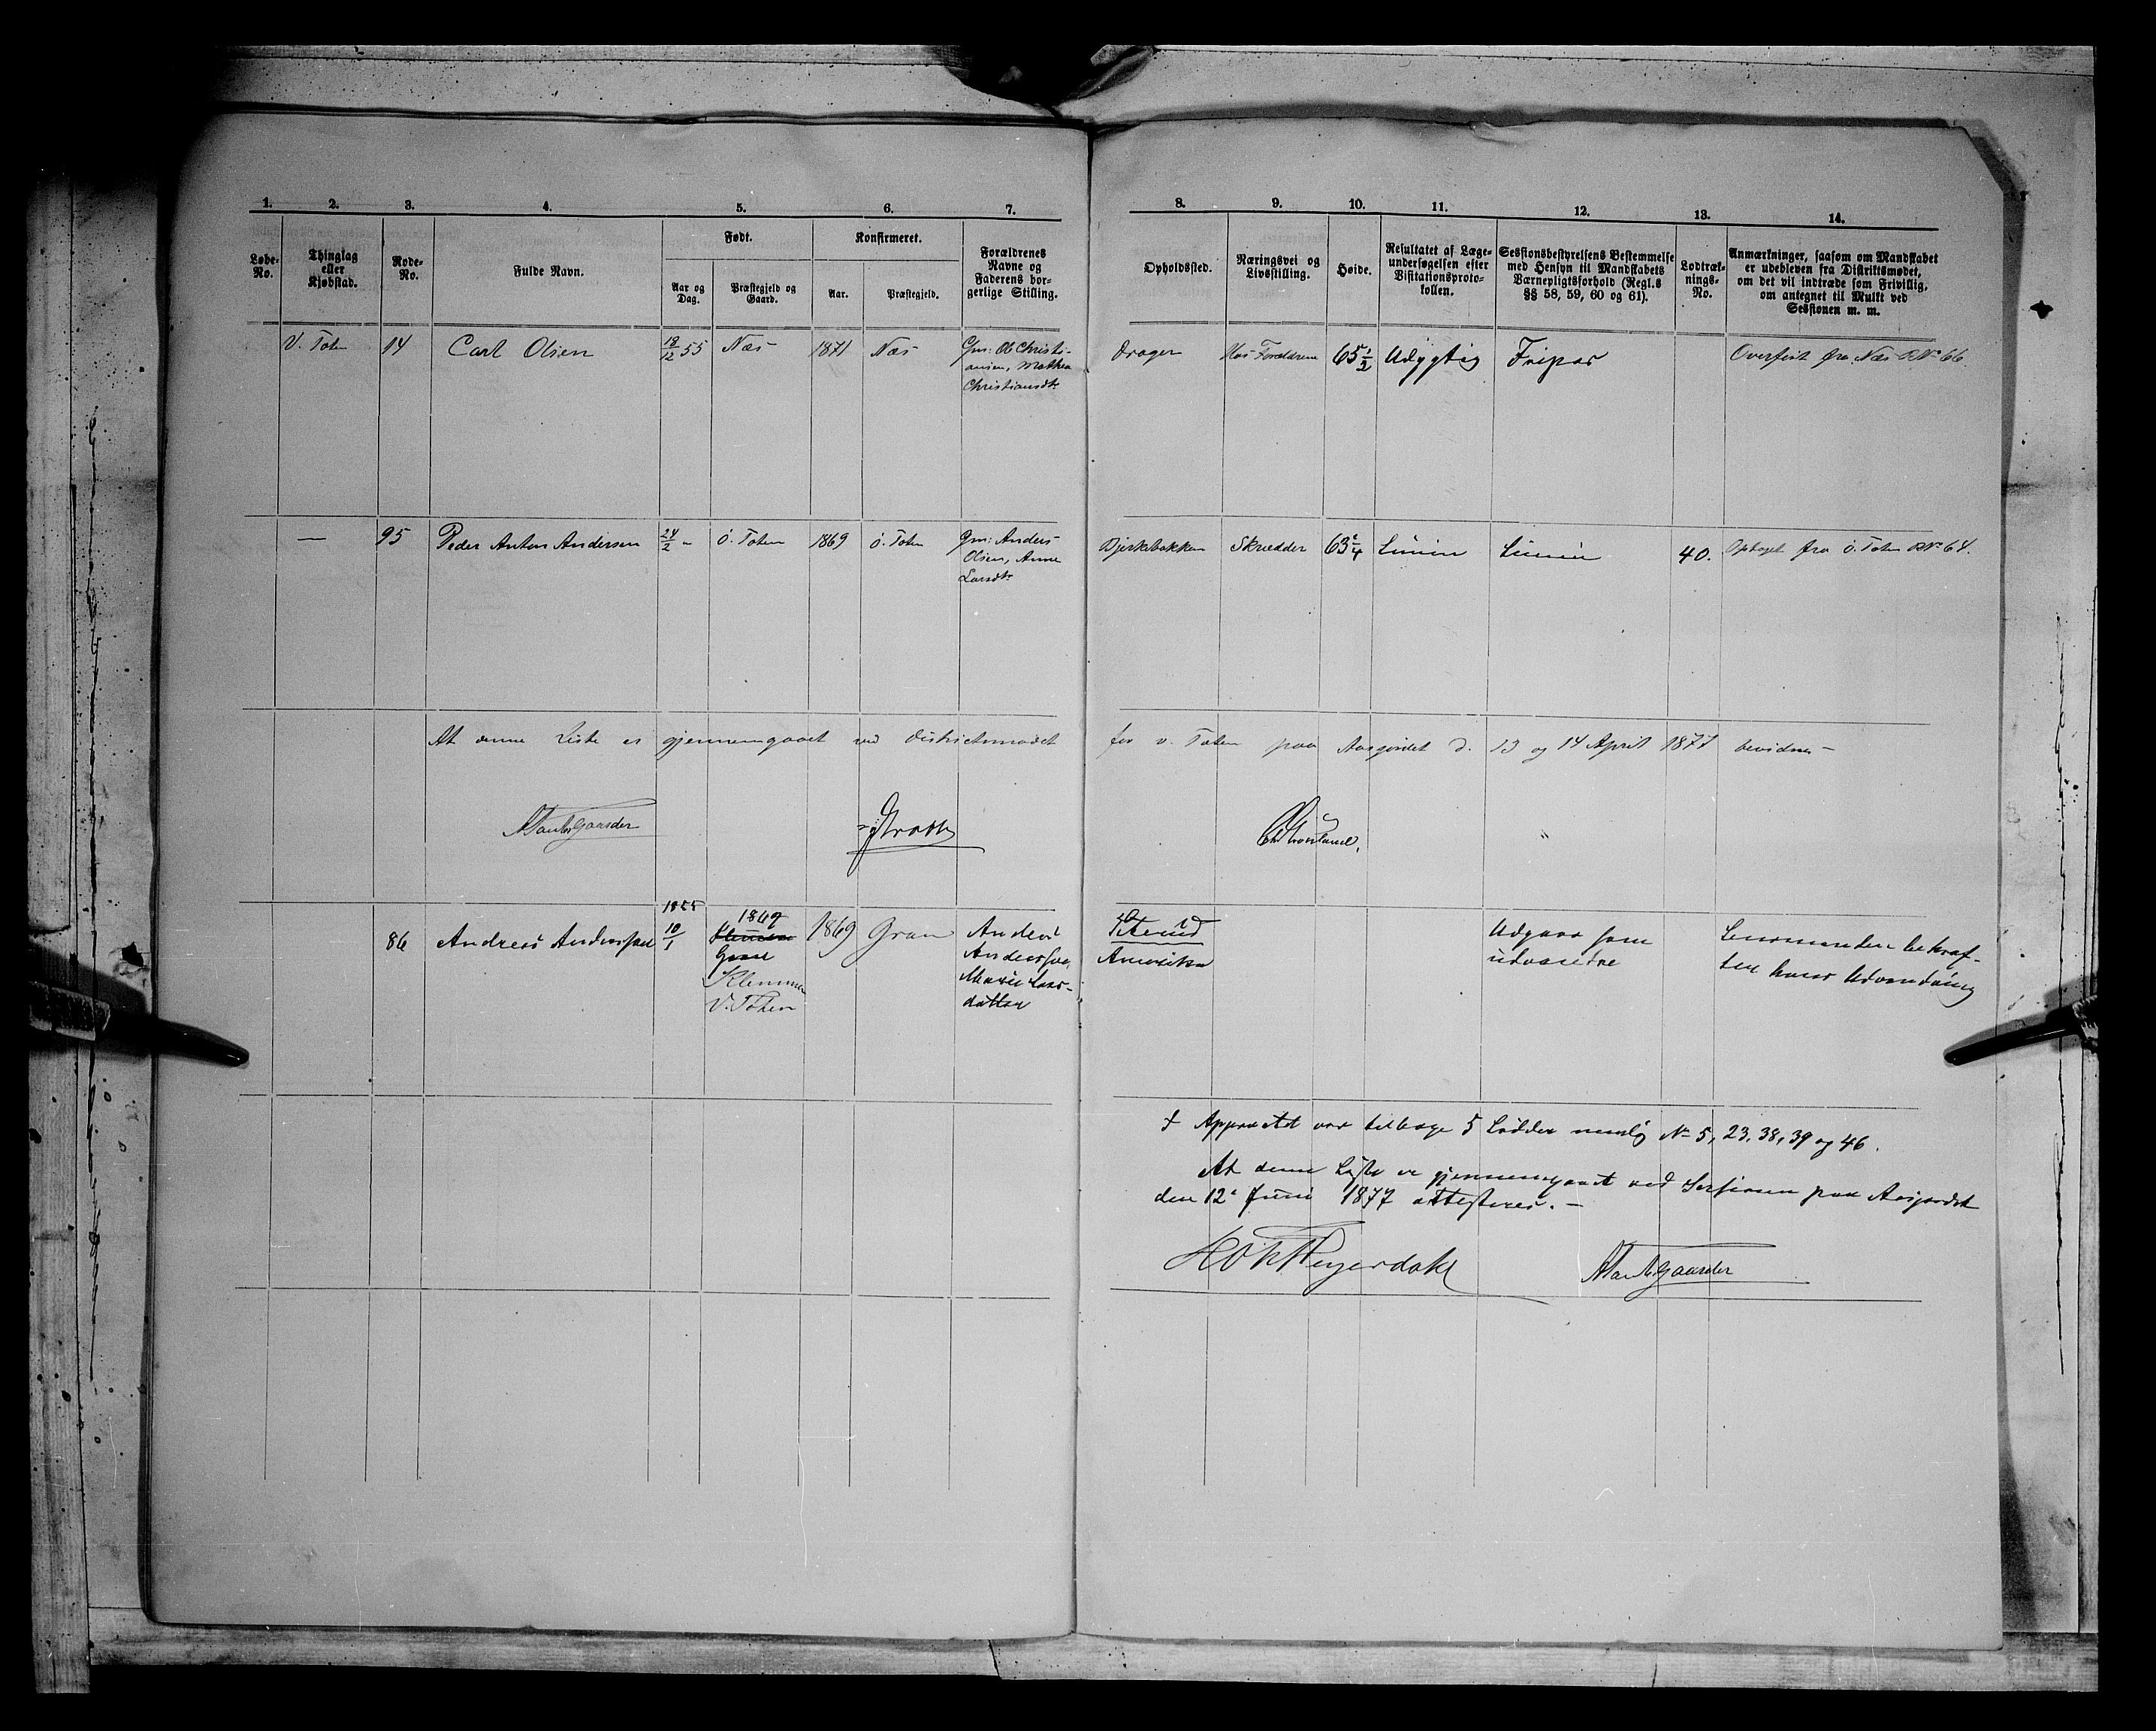 1. 2. 3. 4. 5. 6. 7. 8. 9. 10. 11. 12. 13. 14.
Løbe-No.
Thinglag eller Kjøbstad.
Rode-No.
Fulde Navn.
Født.
Aar og Dag.
Præstegjeld og Gaard.
Konfirmeret.
Aar.
Præstegjeld.
Forældrenes Navne og Faderens borgerlige Stilling.
Opholdssted.
Næringsvei og Livsstilling.
Høide.
Resultatet af Lægeundersøgelsen efter Visitationsprotokollen.
Sessionsbestyrelsens Bestemmelse med Hensyn til Mandskabets Værnepligtsforhold (Regl.s §§ 58, 59, 60 og 61).
Lodtræknings-No.
Anmærkninger, saasom om Mandskabet er udebleven fra Distriktsmødet, om det vil indtræde som Frivillig, om antegnet til Mulkt ved Sessionen m. m.
V. Toten 14 Carl Olsen 18/12 55 Næs 1871 Næs Gm: Ole Christi-
ansen, Mathea
Christiansdtr
Drager Hos Forældrene 65 1/2 Udygtig Fripas Overført fra Næs RNo 66.
— 95 Peder Anton Andersen 24/2 " Ö. Toten 1869 Ö. Toten Gm: Anders
Olsen, Anne
Larsdtr
Bjerkebakken Skrædder 63 1/4 Linien Linien 40. Optaget fra Ö. Toten RNo 64.
At denne Liste er gjennemgaaet ved Districtsmødet for V. Toten paa Aasgjordet d. 13 og 14 April 1877 bevidnes —
1855
86 Andreas Anderssen 10/1 1869 1869 Gran Anders
Klemmen
V. Toten
Anderssen,
Marie Lars-
datter
Amerika
Udgaar som
udvandret
Lensmanden bekræf-
ter hans Udvandring
I Apparatet var tilbage 5 Lodder nemlig No 5, 23, 38, 39 og 46.
At denne Liste er gjennemgaaet ved Sessionen paa Aasgjordet
den 12te Juni 1877 attesteres. —